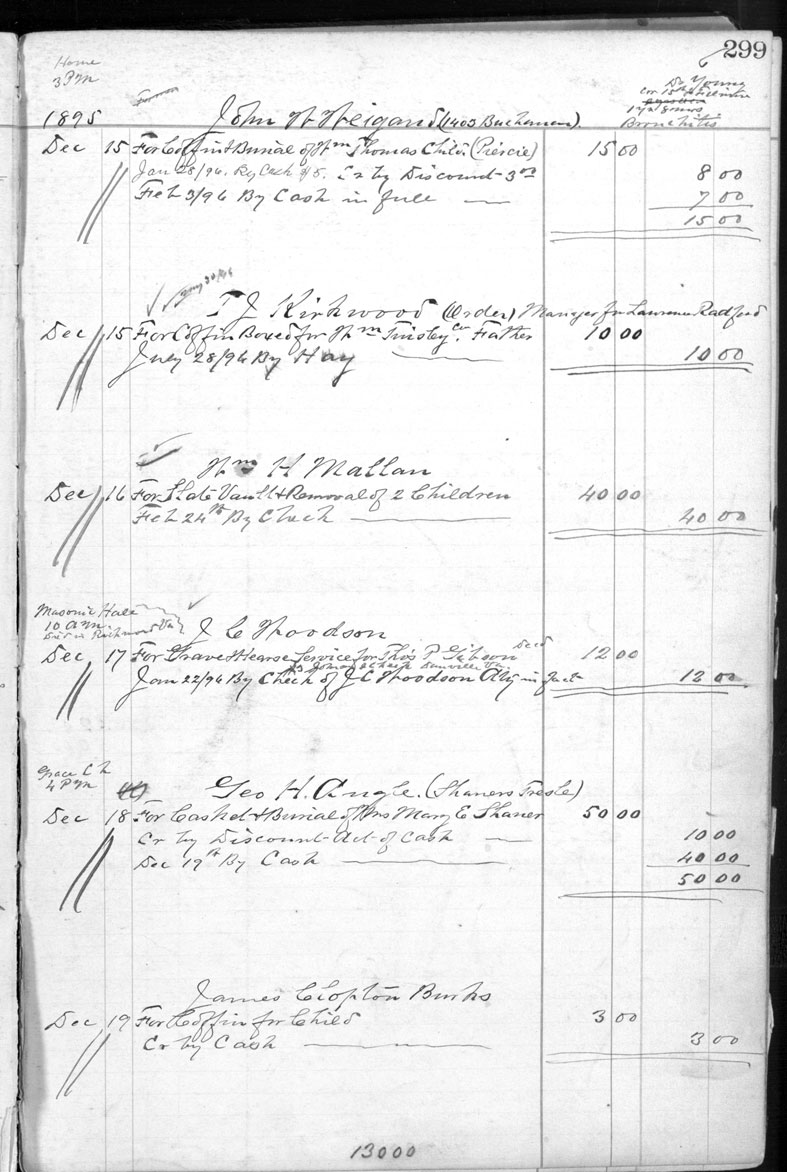 299
Home
3 P.M
Dr Young
cor 15th &
1 yr 8 mos
Bronchitis
1895 John W Weigand (1403 Buchanan).
Dec 15 For Coffin & Burial of Wm Thomas Child (Piercie) 15 00
Jan 28/96. By Cash $5. Cr by Discount 3 00 8 00
Feb 3/96 By Cash in full 7 00
15 00
T J Kirkwood (Order) Manager for Lawrence Radford
Dec 15 For Coffin Boxed for Wm Tinsley Co. Father 10 00
July 28/96 By Hay 10 00
Wm H Mallan
Dec 16 For Slate Vault & Removal of 2 Children 40 00
Feb 24th By Check 40 00
Masonic Hall
10 A.M.
Died in Richmond Va
J C Woodson
Dec 17 For Grave & Hearse Service for Thos P Gibson Decd 12 00
Danville Va
Jan 22/96 By Check of J C Woodson Atty in fact 12 00
Grace Ch
4 P.M
Geo H. Angle. (Shaners Tresle)
Dec 18 For Casket & Burial of Mrs Mary E Shaner 50 00
Cr by Discount Act of Cash 10 00
Dec 19th By Cash 40 00
50 00
James Clopton Burks
Dec 19 For Coffin for Child 3 00
Cr by Cash 3 00
13000